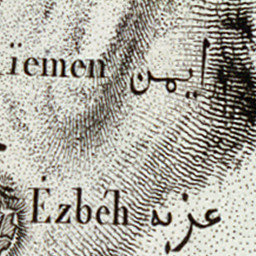 ïemen ايمن
Êzbéh عزبه